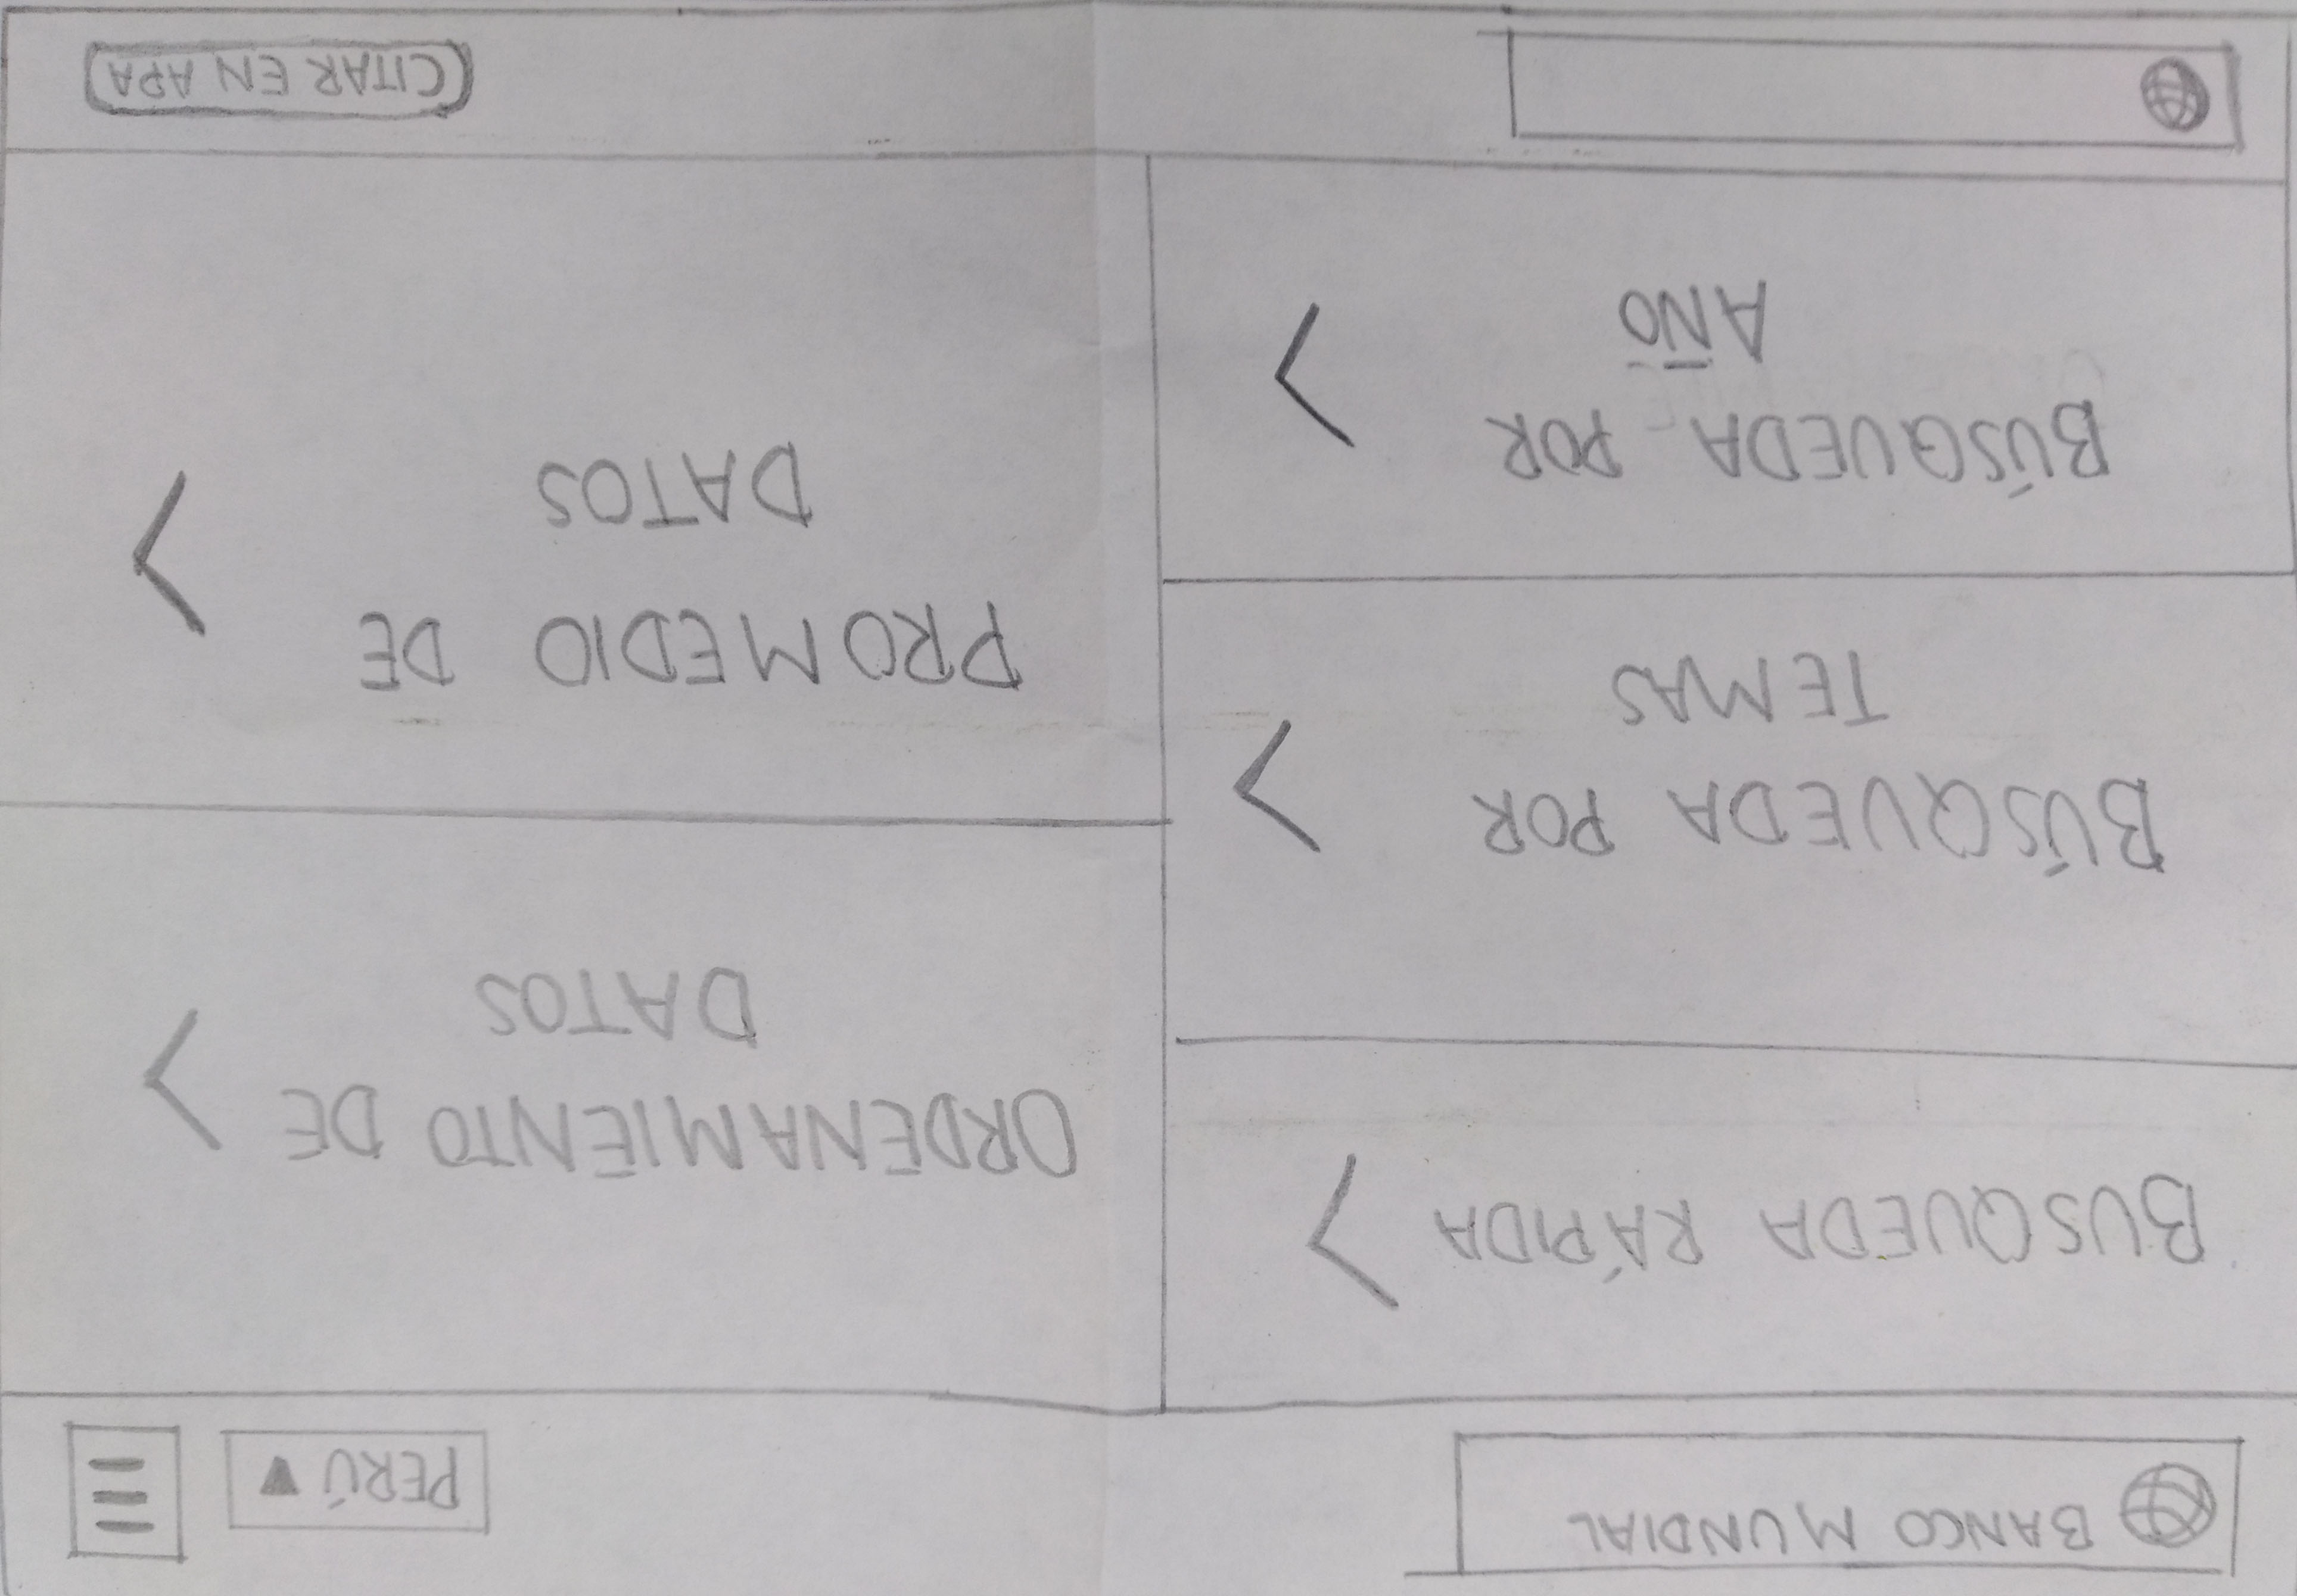 BANCO MUNDIAL
PERÚ
BUSQUEDA RÁPIDA
BÚSQUEDA POR
TEMAS
BÚSQUEDA POR
AÑO
ORDENAMIENTO DE
DATOS
PROMEDIO DE
DATOS
CITAR EN APA